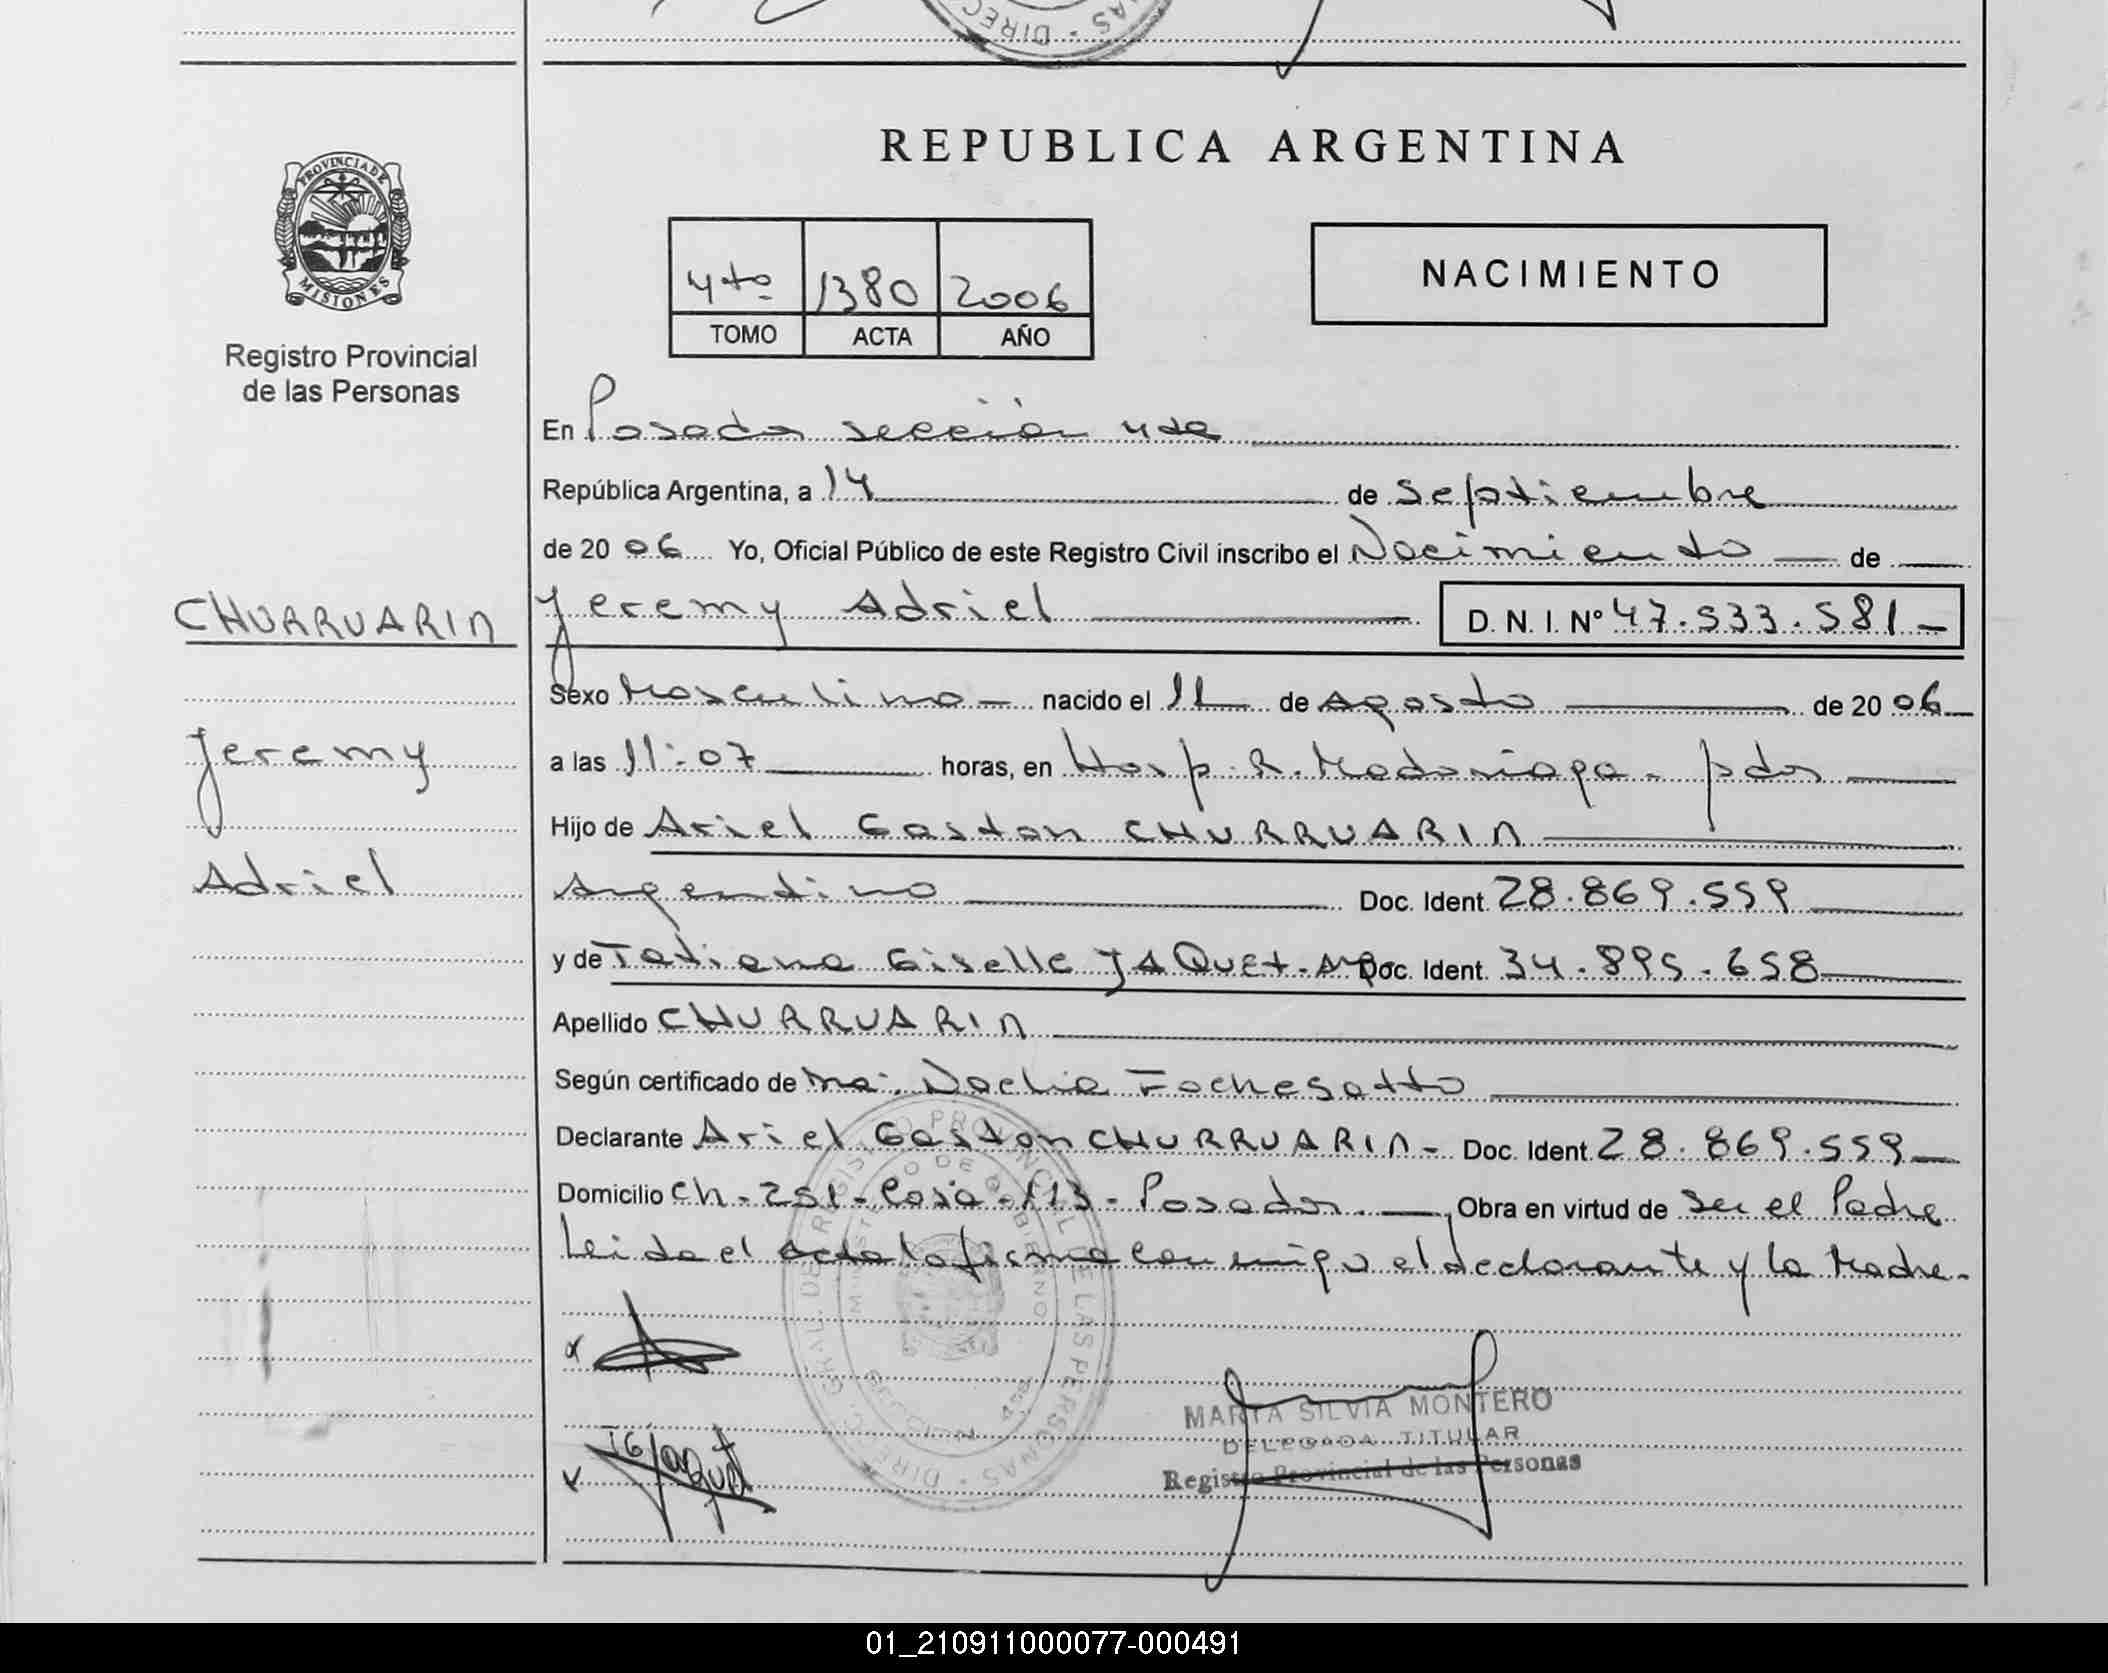 DIREC · NAS
REPUBLICA ARGENTINA
PROVINCIA DE MISIONES
Registro Provincial
de las Personas
4to 1380 2006
TOMO ACTA AÑO
NACIMIENTO
En Posadas sección 4ta
República Argentina, a 14 de septiembre
de 2006 Yo, Oficial Público de este Registro Civil inscribo el Nacimiento de
CHURRUARIN
Jeremy Adriel D. N. I. Nº 47.533.581-
Sexo Masculino nacido el 11 de Agosto de 2006
Jeremy
a las 11:07 horas, en Hosp. R. Madariaga - pdas
Hijo de Ariel Gaston CHURRUARIN
Adriel
Argentino Doc. Ident. 28.869.559
y de Tatiana Giselle JAQUET - Arg. Doc. Ident. 34.895.658
Apellido CHURRUARIN
Según certificado de Ma. Noelia Fochesatto
Declarante Ariel Gaston CHURRUARIN - Doc. Ident. 28.869.559
Domicilio Ch - 251 - Casa - 113 - Posadas. Obra en virtud de ser el Padre
Leida el acta la firma conmigo el declarante y la Madre-
DIRECC. GRAL. DEL REGISTRO PROVINCIAL DE LAS PERSONAS
MINISTERIO DE GOBIERNO
SECCION 4ta
TG Jaquet
MARTA SILVIA MONTERO
DELEGADA TITULAR
Registro Provincial de las Personas
01_210911000077-000491